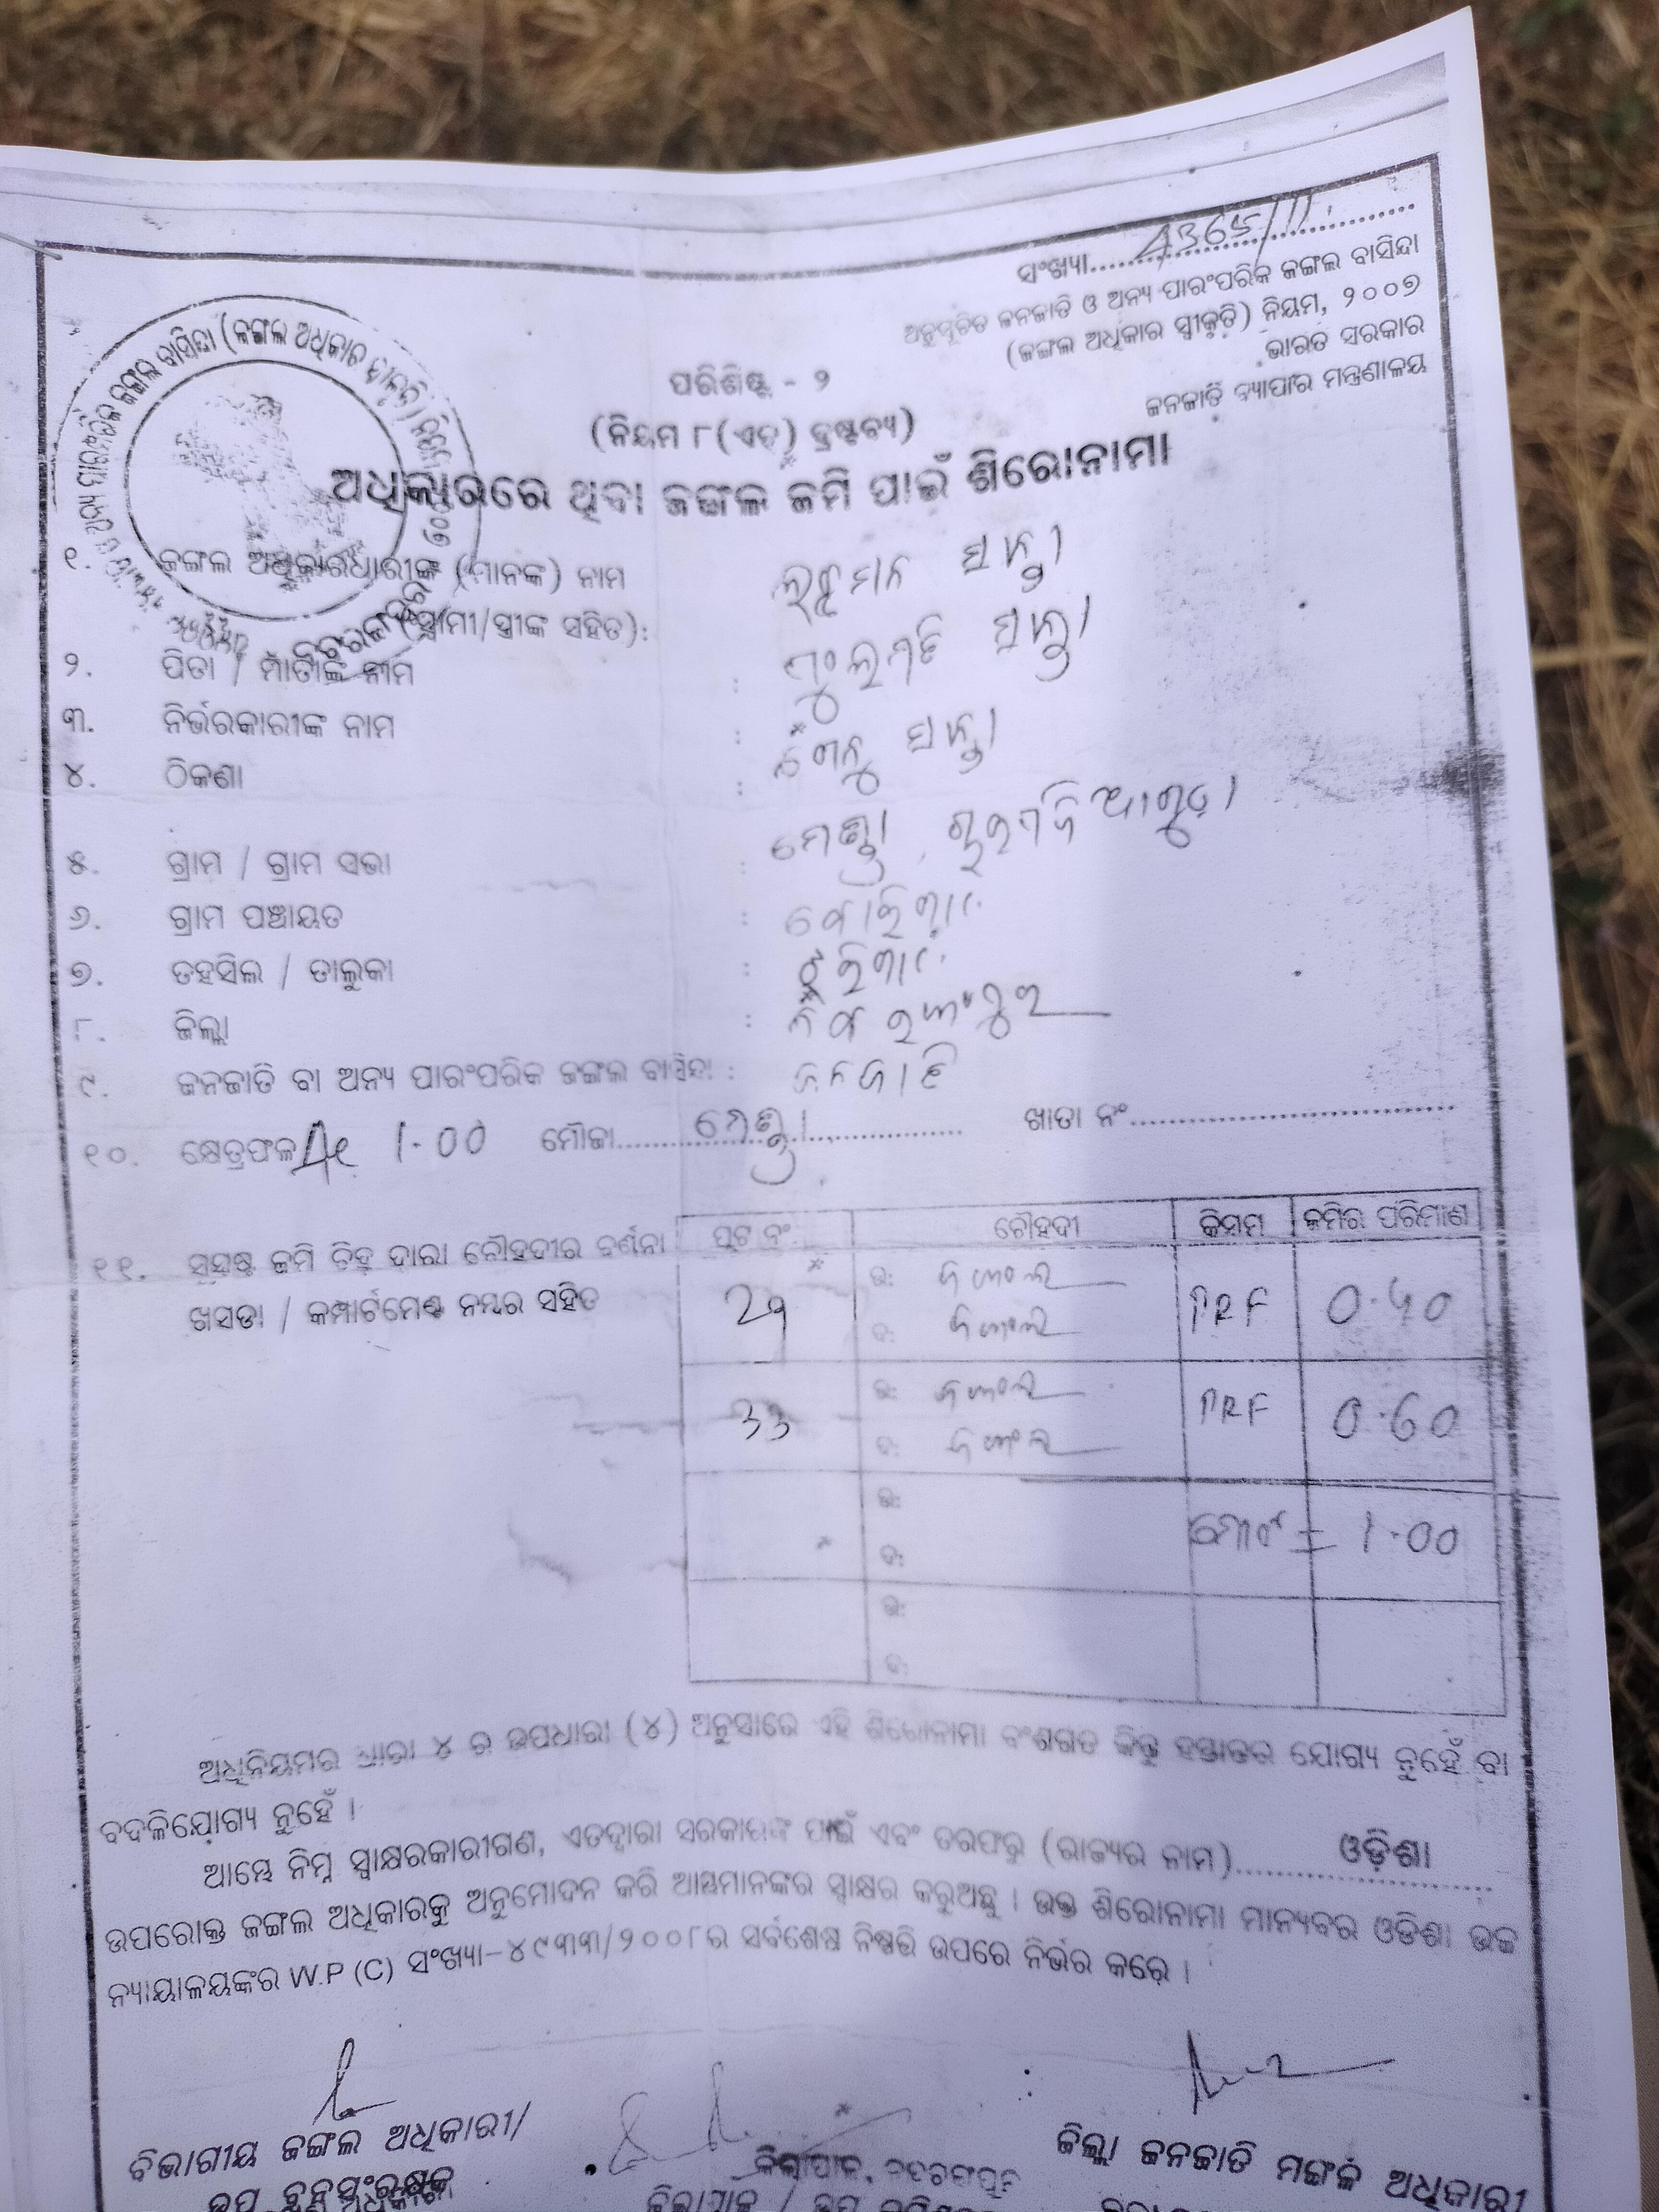 ସଂଖ୍ୟା
ଅନୁସୂଚିତ ଜନଜାତି ଓ ଅନ୍ୟ ପାରଂପରିକ ଜଙ୍ଗଲ ବାସିନ୍ଦା
(ଜଙ୍ଗଲ ଅଧିକାର ସ୍ୱୀକୃତି) ନିୟମ, ୨୦୦୭
ଭାରତ ସରକାର
ଜନଜାତି ବ୍ୟାପାର ମନ୍ତ୍ରଣାଳୟ
ପରିଶିଷ୍ଟ - ୨
(ନିୟମ ୮(ଏଚ୍) ଦ୍ରଷ୍ଟବ୍ୟ)
ଅଧିକାରରେ ଥିବା ଜଙ୍ଗଲ ଜମି ପାଇଁ ଶିରୋନାମା
୧. ଜଙ୍ଗଲ ଅଧିକାରଧାରୀଙ୍କ (ମାନଙ୍କ) ନାମ
(ସ୍ୱାମୀ/ସ୍ତ୍ରୀଙ୍କ ସହିତ):
୨. ପିତା / ମାତାଙ୍କ ନାମ :
୩. ନିର୍ଭରକାରୀଙ୍କ ନାମ :
୪. ଠିକଣା :
୫. ଗ୍ରାମ / ଗ୍ରାମ ସଭା :
୬. ଗ୍ରାମ ପଞ୍ଚାୟତ :
୭. ତହସିଲ / ତାଲୁକା :
୮. ଜିଲ୍ଲା : ନବରଙ୍ଗପୁର
୯. ଜନଜାତି ବା ଅନ୍ୟ ପାରଂପରିକ ଜଙ୍ଗଲ ବାସିନ୍ଦା : ଜନଜାତି
୧୦. କ୍ଷେତ୍ରଫଳ Ac 1.00 ମୌଜା ଖାତା ନଂ
୧୧. ସୁସ୍ପଷ୍ଟ ଜମି ଚିହ୍ନ ଦ୍ୱାରା ଚୌହଦୀର ବର୍ଣନା
ଖସଡା / କମ୍ପାର୍ଟମେଣ୍ଟ ନମ୍ବର ସହିତ
ପ୍ଲଟ ନଂ ଚୌହଦୀ କିସମ ଜମିର ପରିମାଣ
29 ଉ: ଜଙ୍ଗଲ PRF 0.40
ଦ: ଜଙ୍ଗଲ
33 ଉ: ଜଙ୍ଗଲ PRF 0.60
ଦ: ଜଙ୍ଗଲ
ଉ: ମୋଟ = 1.00
ଦ:
ଉ:
ଦ:
ଅଧିନିୟମର ଧାରା ୪ ର ଉପଧାରା (୪) ଅନୁସାରେ ଏହି ଶିରୋନାମା ବଂଶଗତ କିନ୍ତୁ ହସ୍ତାନ୍ତର ଯୋଗ୍ୟ ନୁହେଁ ବା
ବଦଳିଯୋଗ୍ୟ ନୁହେଁ ।
ଆମ୍ଭେ ନିମ୍ନ ସ୍ୱାକ୍ଷରକାରୀଗଣ, ଏତଦ୍ୱାରା ସରକାରଙ୍କ ପାଇଁ ଏବଂ ତରଫରୁ (ରାଜ୍ୟର ନାମ) ଓଡ଼ିଶା
ଉପରୋକ୍ତ ଜଙ୍ଗଲ ଅଧିକାରକୁ ଅନୁମୋଦନ କରି ଆମ୍ଭମାନଙ୍କର ସ୍ୱାକ୍ଷର କରୁଅଛୁ । ଉକ୍ତ ଶିରୋନାମା ମାନ୍ୟବର ଓଡିଶା ଉଚ୍ଚ
ନ୍ୟାୟାଳୟଙ୍କର W.P (C) ସଂଖ୍ୟା-୪୯୩୩/୨୦୦୮ର ସର୍ବଶେଷ ନିଷ୍ପତ୍ତି ଉପରେ ନିର୍ଭର କରେ ।
ବିଭାଗୀୟ ଜଙ୍ଗଲ ଅଧିକାରୀ/
ଉପ ବନସଂରକ୍ଷକ
ଜିଲ୍ଲାପାଳ, ନବରଙ୍ଗପୁର
ଜିଲ୍ଲା ଜନଜାତି ମଙ୍ଗଳ ଅଧିକାରୀ